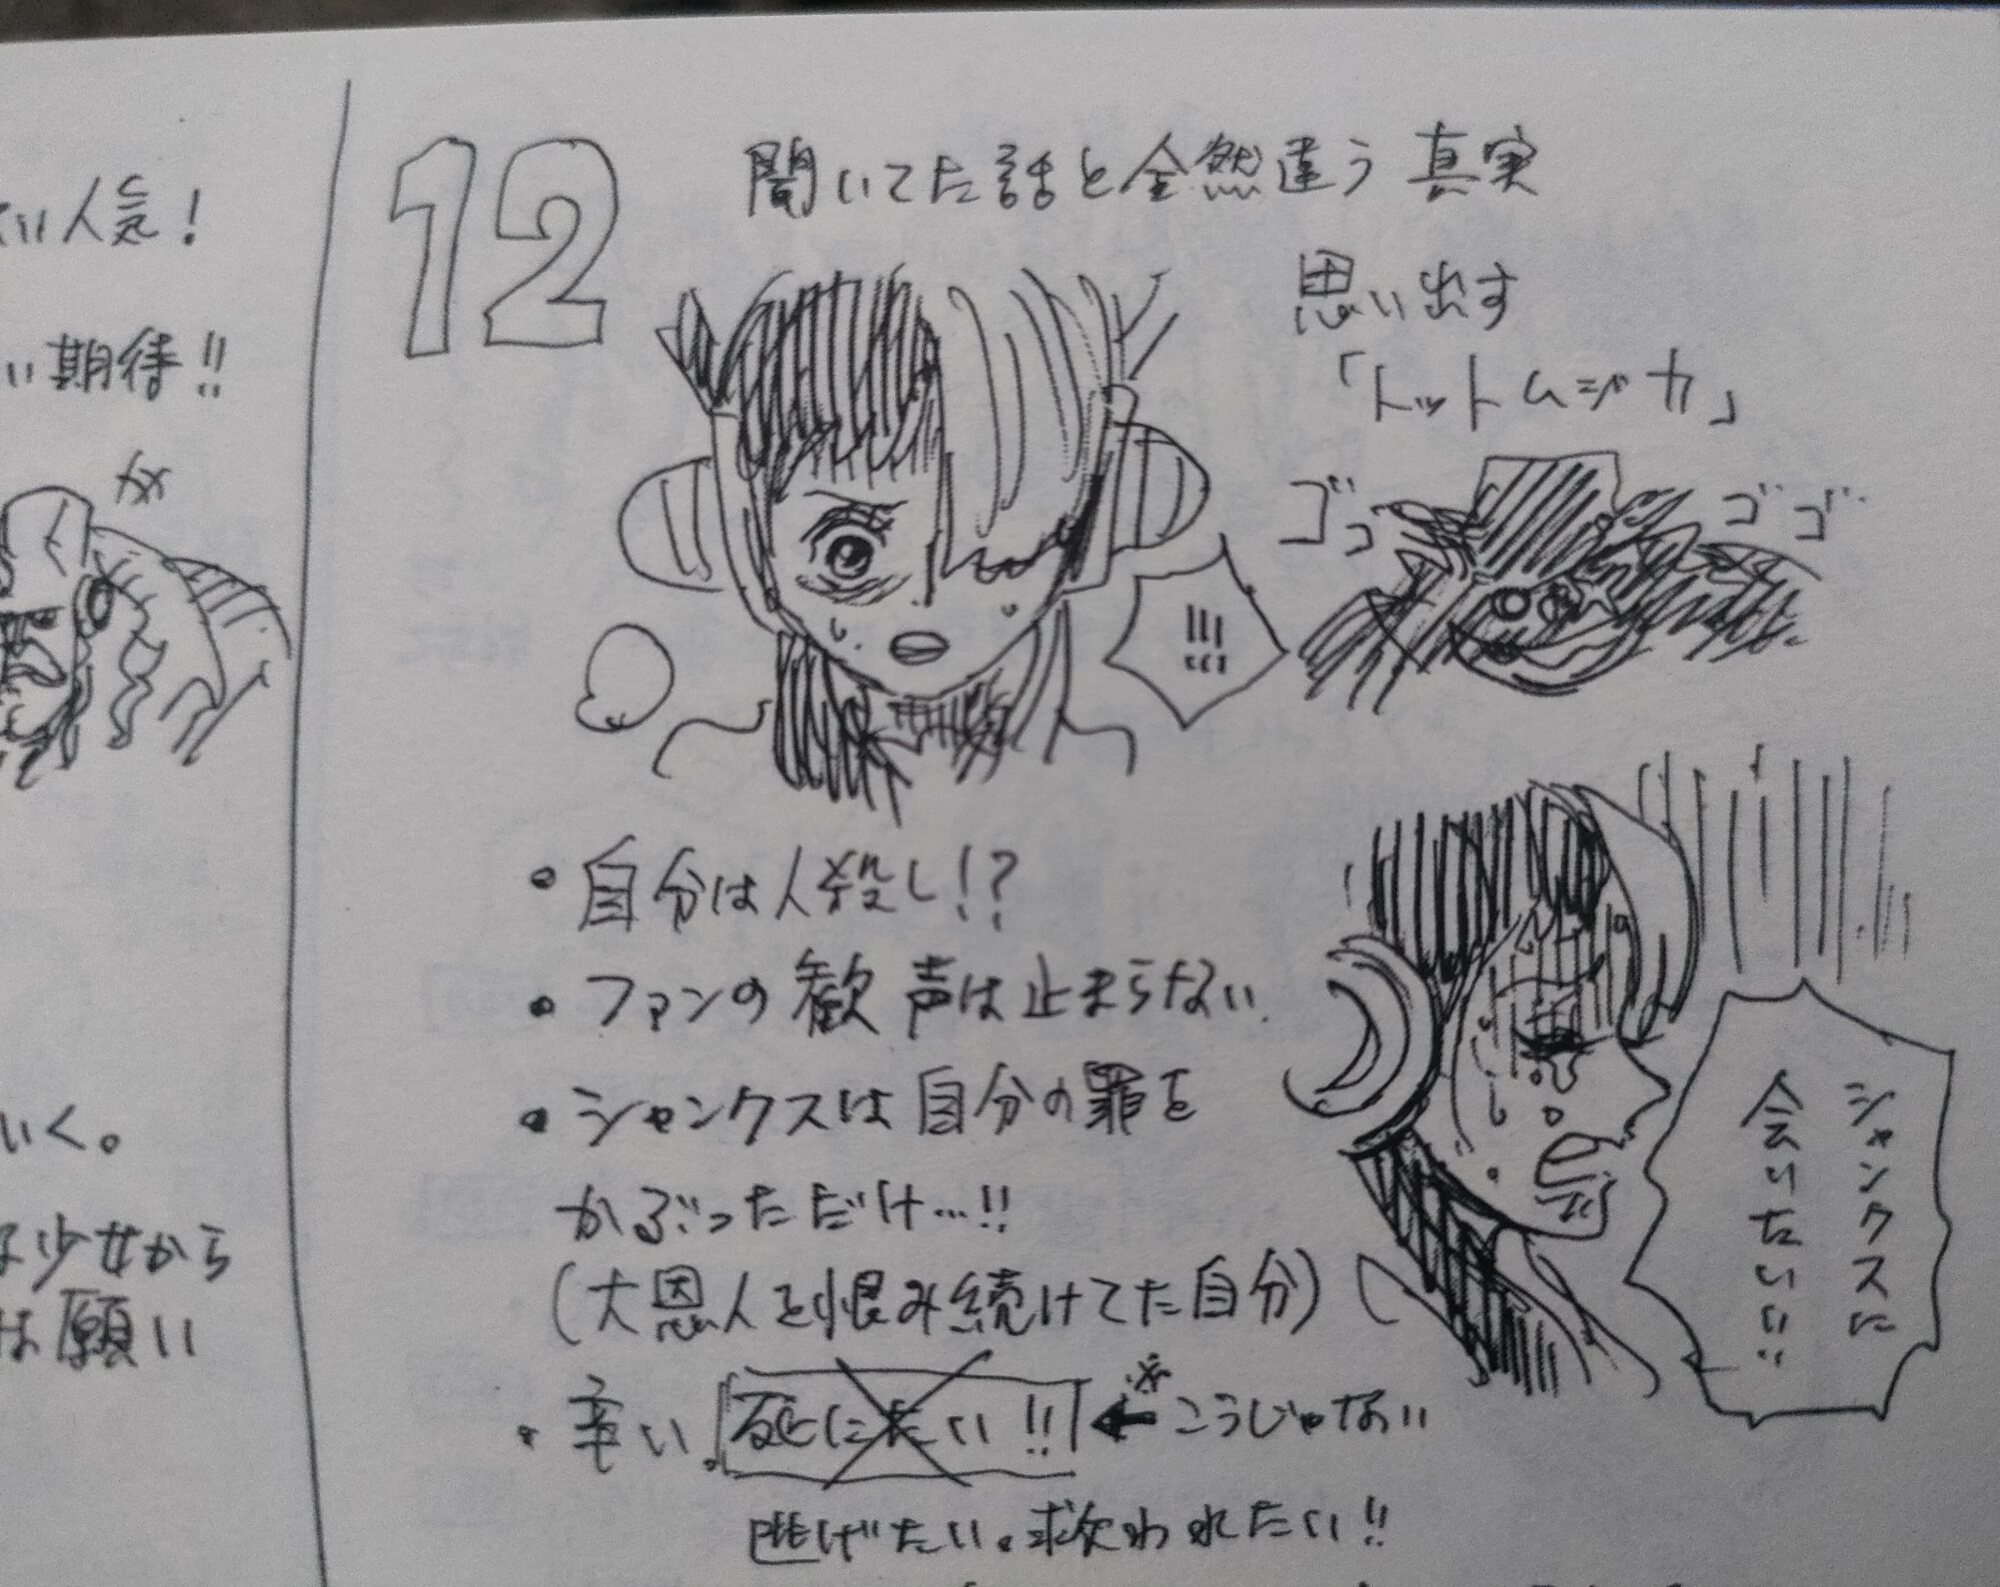 い人気!
い期待!!
いく。
少女から
は願い
12
聞いてた話と全然違う真実
思い出す
「トットムジカ」
ゴゴ
ゴゴ
!!!
・自分は人殺し!?
・ファンの歓声は止まらない
・シャンクスは自分の罪を
かぶっただけ…!!
(大恩人を恨み続けてた自分)
・辛い。死にたい!! ←※こうじゃない
逃げたい。救われたい!!
シャンクスに
会いたい!!